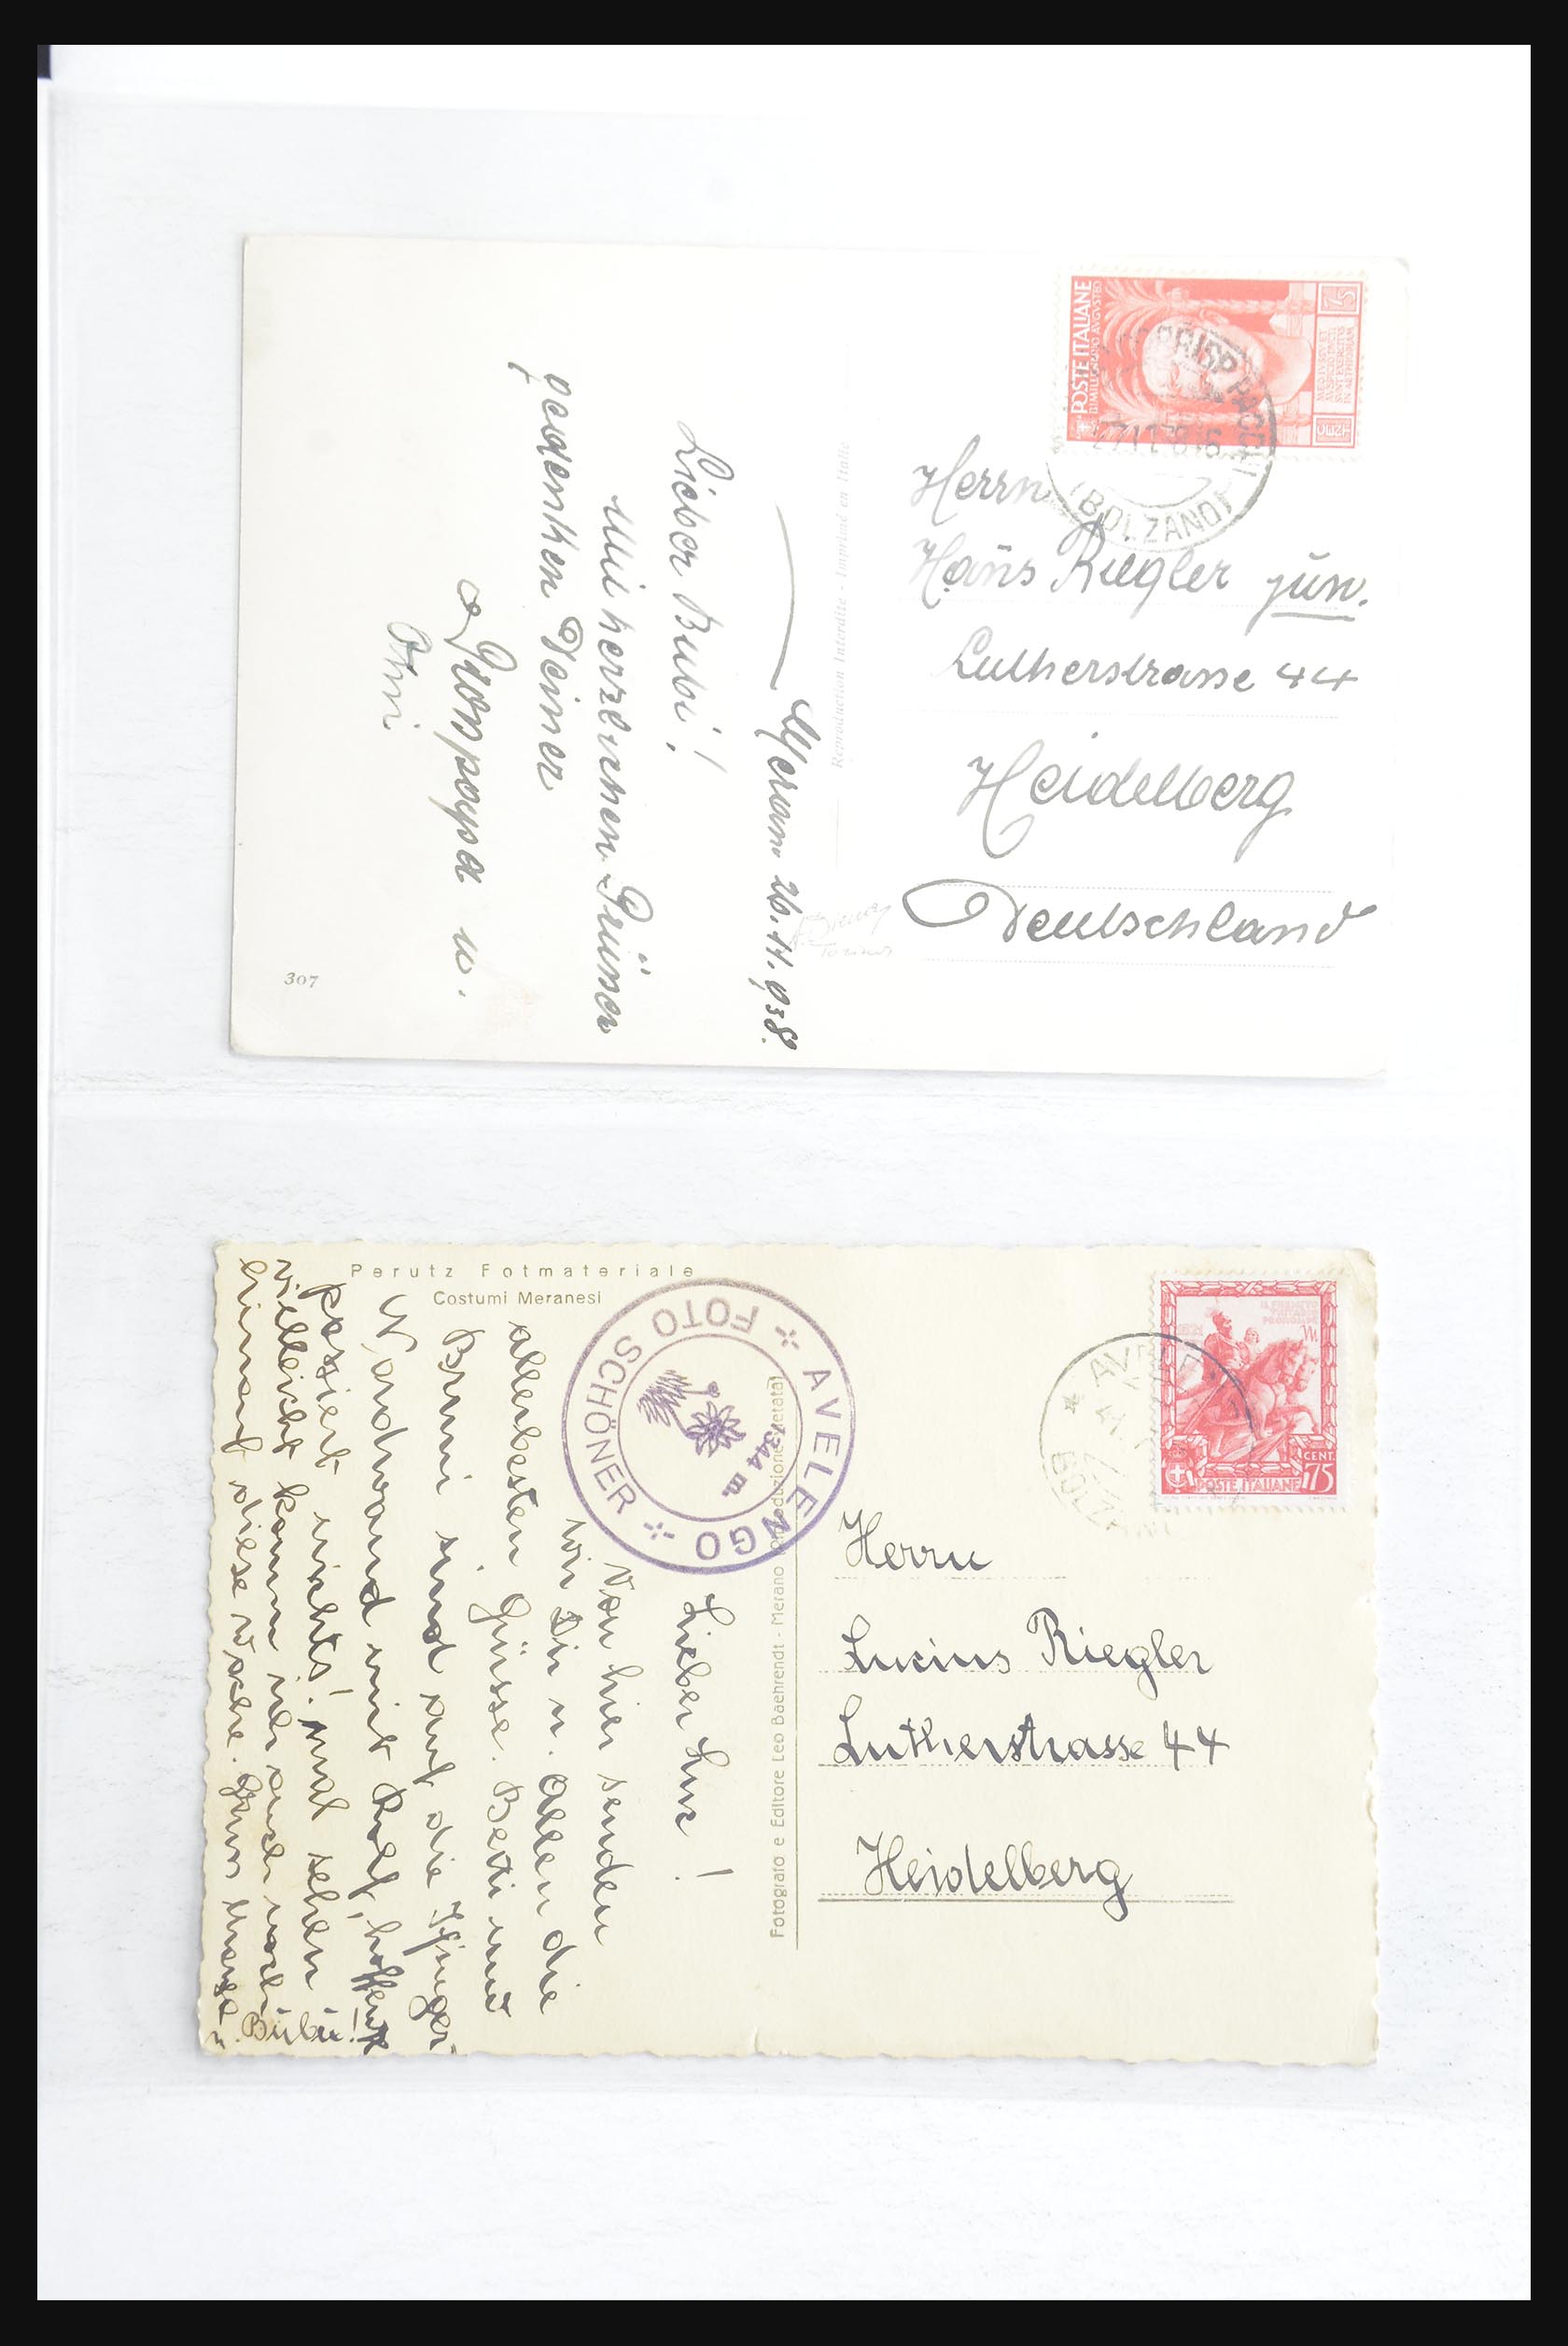 POSTE ITALIANE
BIMILLENARIO AVGVSTEO
75
BOLZANO
Herrn
Hans Riegler jun.
Lutherstrasse 44
Heidelberg
Deutschland
Reproduction Interdite - Imprimé en Italie
Meran 26.11.938.
Lieber Bubi!
Mit herzlichen Grüssen
gedenken Deiner
Grosspapa u.
Omi
307
Perutz Fotmateriale
Costumi Meranesi
AVELENGO
FOTO SCHÖNER
1344 m.
POSTE ITALIANE
CENT. 75
Herrn
Lucius Riegler
Lutherstrasse 44
Heidelberg
Fotografo e Editore Leo Baehrendt - Merano
Lieber Luc!
Von hier senden
wir Dir u. allen die
allerbesten Grüsse. Berti und
Bruni sind auf die Ifinger-
Nordwand mit Rolf, hoffentl.
passiert nichts! mal sehen
vielleicht komm ich auch noch
hinauf diese Woche. Gruss
Bubi!